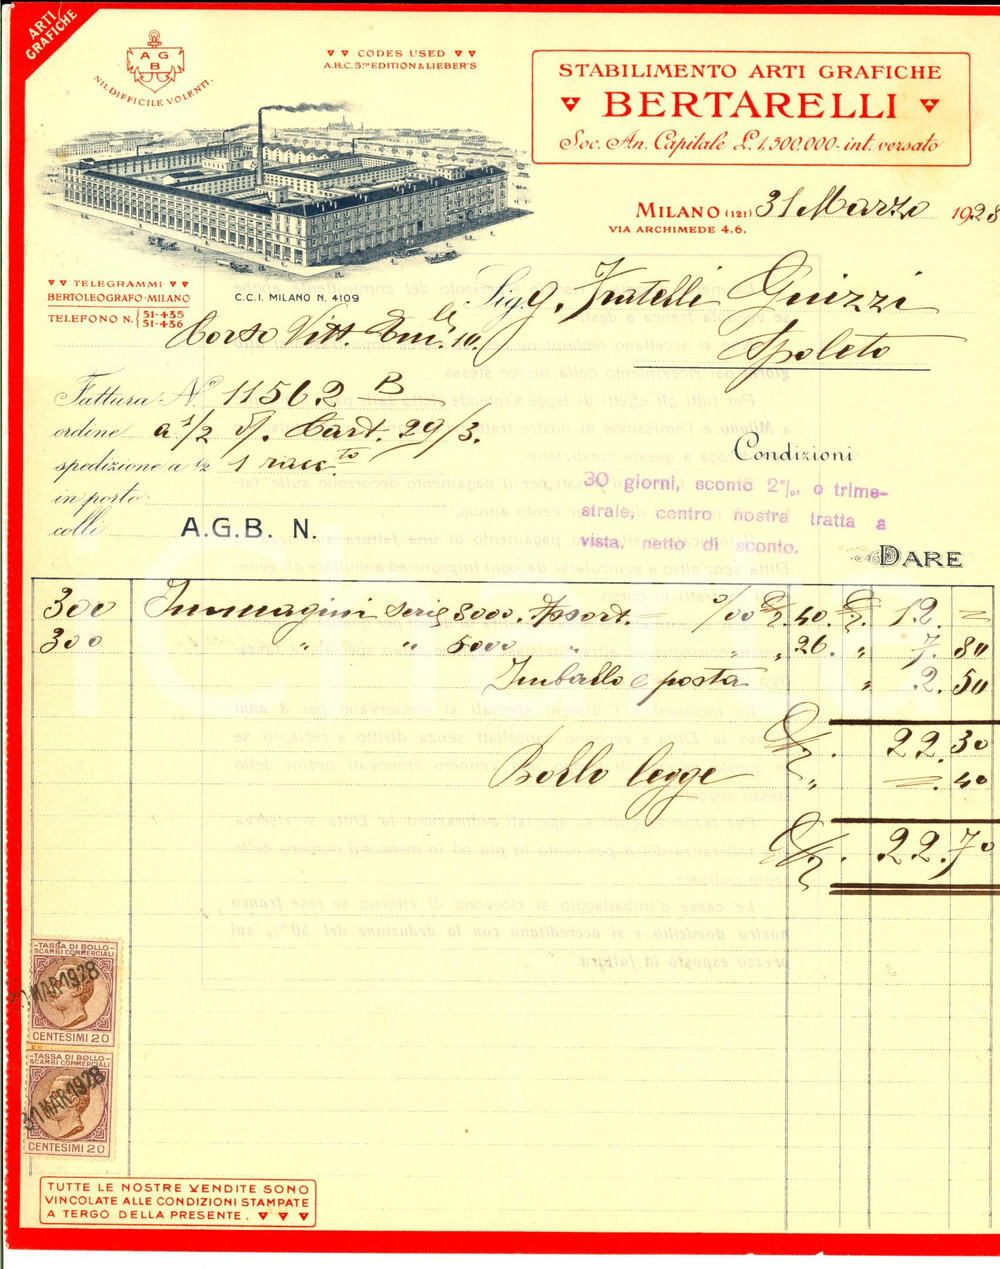 ARTI
GRAFICHE
A G
B
NIL DIFFICILE VOLENTI.
CODES USED
A.B.C. 5TH EDITION & LIEBER'S
STABILIMENTO ARTI GRAFICHE
BERTARELLI
Soc. An. Capitale £. 1.500.000 - int. versato
MILANO (121) 31 Marzo 1928
VIA ARCHIMEDE 4.6.
TELEGRAMMI
BERTOLEOGRAFO - MILANO
TELEFONO N. 51-435
51-436
C.C.I. MILANO N. 4109
Sigg. Fratelli Guizzi
Corso Vitt. Em.le 10.
Spoleto
Fattura N.º 11562 B
ordine a 1/2 Cart. 29/3.
spedizione a 1/2 1 racc.to
in porto
colli A.G.B. N.
Condizioni
30 giorni, sconto 2%, o trime-
strale, contro nostra tratta a
vista. netto di sconto.
DARE
300 Immagini serie 8000. Assort. = %00 £. 40. £. 12. =
300 " " 5000 " " " 26. " 7. 80
Imballo e posta " 2. 50
£. 22. 30
Bollo legge " =. 40
£. 22. 70
- TASSA DI BOLLO -
SCAMBI COMMERCIALI
MAR 1928
CENTESIMI 20
- TASSA DI BOLLO -
SCAMBI COMMERCIALI
31 MAR 1928
CENTESIMI 20
TUTTE LE NOSTRE VENDITE SONO
VINCOLATE ALLE CONDIZIONI STAMPATE
A TERGO DELLA PRESENTE.